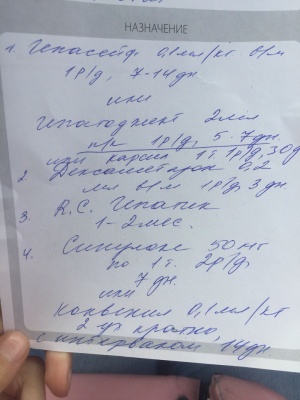 НАЗНАЧЕНИЕ
1. Гепасейф 0,1 мл/кг в/м
1 р/д, 7-14 дн
или
Гепатоджект 2 мл
п/к 1 р/д, 5-7 дн.
или карсил 1 т. 1 р/д, 30 д
2. Дексаметазон 0,2
мл в/м 1 р/д, 3 дн.
3. R.C. Гепатик
1-2 мес.
4. Синулокс 50 мг
по 1 т. 2 р/д,
7 дн.
или
Конвения 0,1 мл/кг
2 кратно,
с интервалом 14 дн.